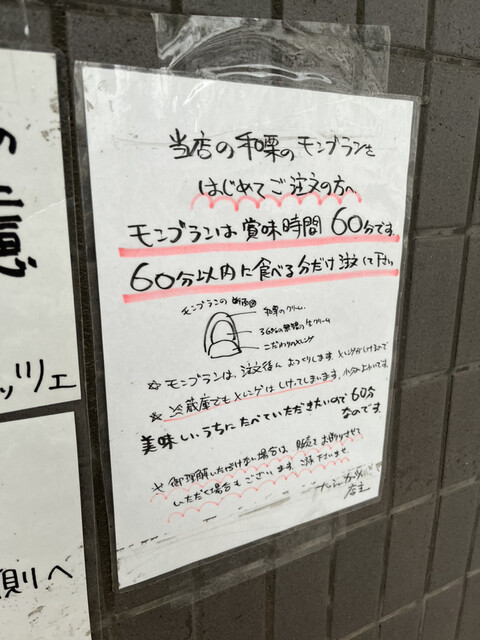 当店の和栗のモンブランを
はじめてご注文の方へ
モンブランは賞味時間60分です。
60分以内に食べる分だけ注文して下さい
モンブランの断面図
和栗のクリーム
36%の無糖の生クリーム
こだわりのメレンゲ
☆モンブランは、注文後におつくりします。メレンゲがしけるので
☆冷蔵庫でもメレンゲはしけってしまいます。
美味しいうちにたべていただきたいので60分
なのです。
☆御理解いただけない場合は販売をお断りさせて
いただく場合もございます。ご注意下さいませ。
店主
の
憶
ッツェ
側へ